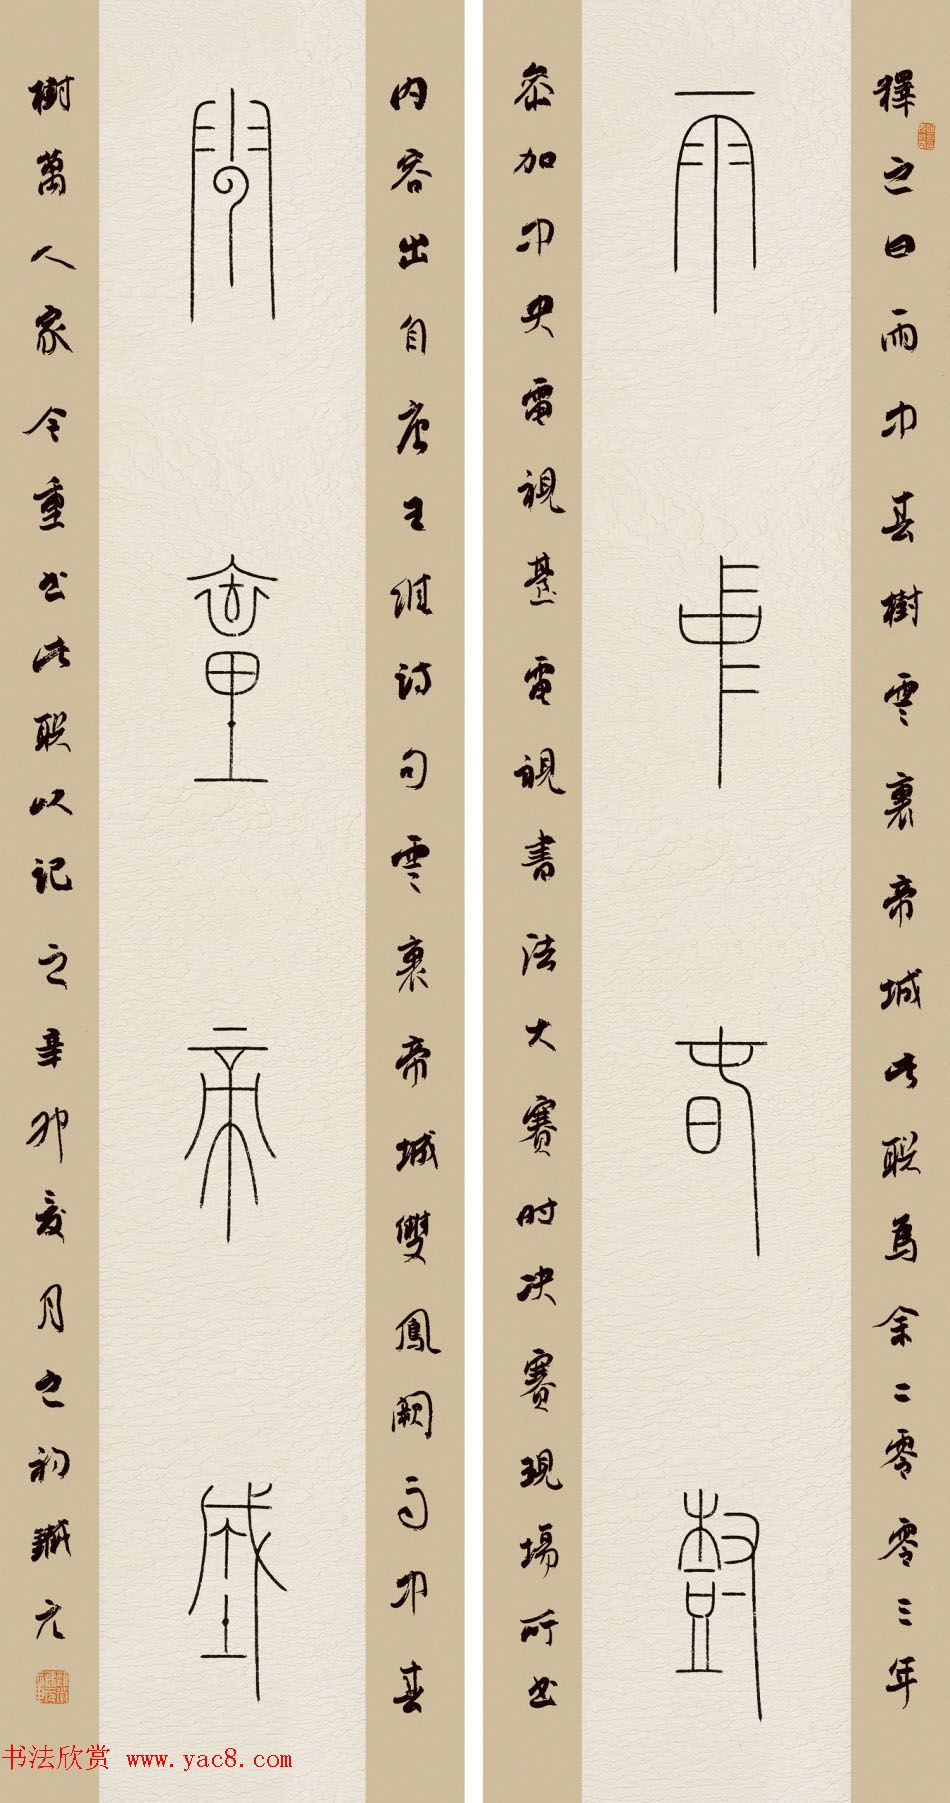 釋之曰雨中春樹雲裏帝城此联為余二零零三年
雨中春樹
参加中央電視臺電視書法大賽时决賽現場所书
内容出自唐王維詩句雲裏帝城雙鳳阙雨中春
雲裏帝城
樹萬人家今重书此联以记之辛卯夏月之初鐵元
书法欣赏 www.yac8.com